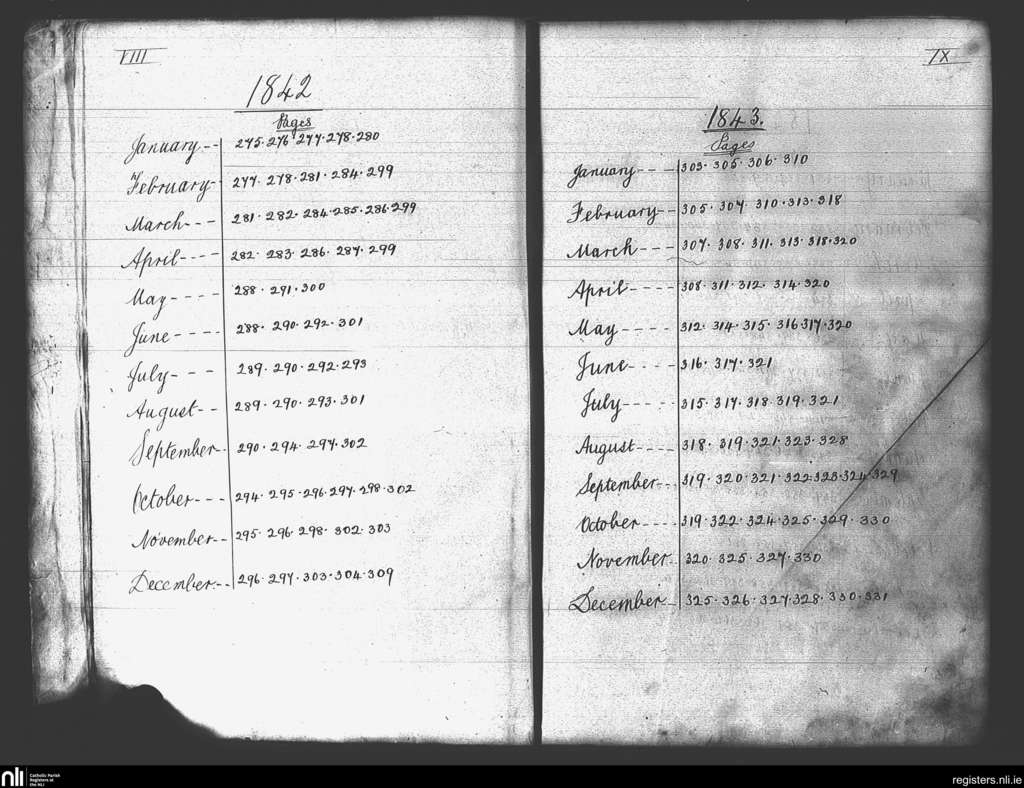 VIII
1842
Pages
January -- 275·276·277·278·280
February- 277·278·281·284·299
March --- 281·282·284·285·286·299
April ---- 282·283·286·287·299
May ---- 288·291·300
June ---- 288·290·292·301
July - - - 289·290·292·293
August -- 289·290·293·301
September- 290·294·297·302
October --- 294·295·296·297·298·302
November -- 295·296·298·302·303
December -- 296·297·303·304·309
IX
1843.
Pages
January --- 303·305·306·310
February -- 305·307·310·313·318
March --- 307·308·311·313·318·320
April ---- 308·311·312·314·320
May ---- 312·314·315·316·317·320
June ---- 316·317·321
July ---- 315·317·318·319·321
August ---- 318·319·321·323·328
September -- 319·320·321·322·323·324·329
October ---- 319·322·324·325·329·330
November 320·325·327·330
December - 325·326·327·328·330·331
nli
Catholic Parish
Registers at
the NLI
registers.nli.ie